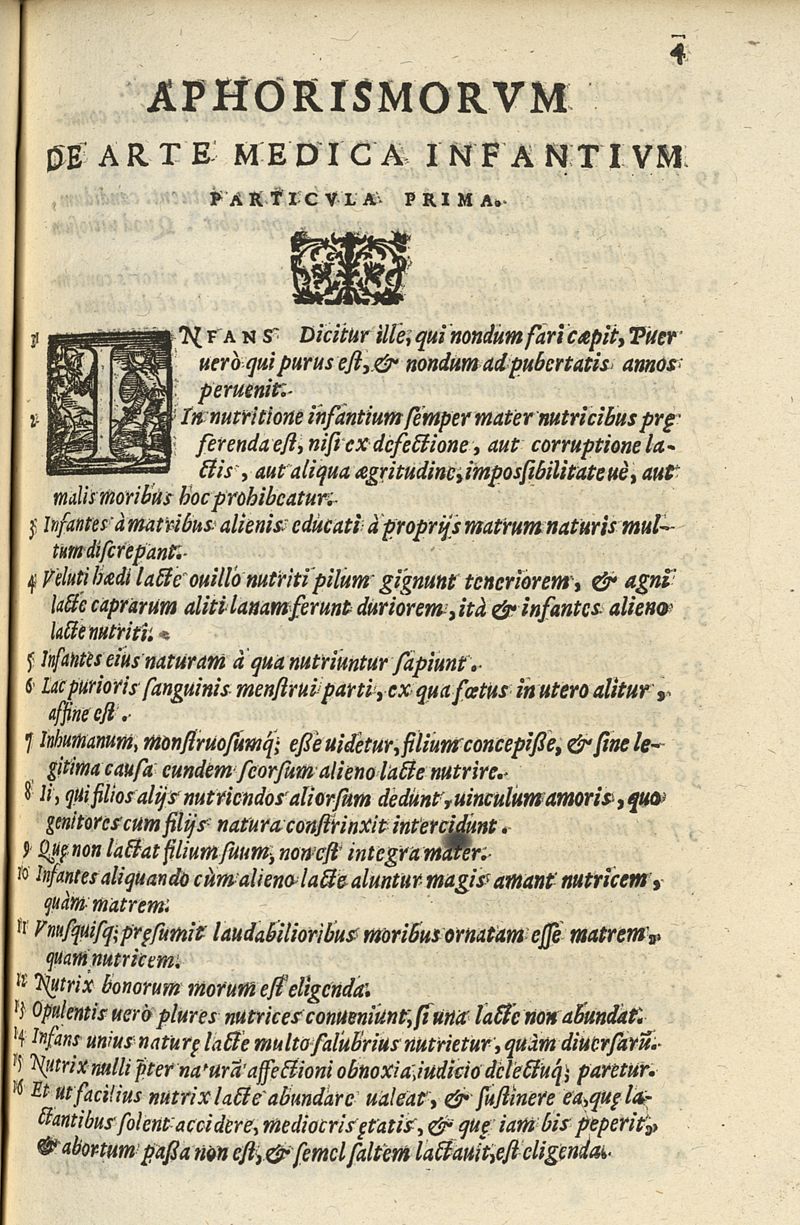 4
APHORISMORVM
DE ARTE MEDICA INFANTIVM
PARTICVLA PRIMA.
1 INFANS Dicitur ille, qui nondum fari cæpit, Puer
uerò qui purus est, & nondum ad pubertatis annos
peruenit.
2 In nutritione infantium semper mater nutricibus prę
ferenda est, nisi ex defectione, aut corruptione la-
ctis, aut aliqua ægritudine, impossibilitateuè, aut
malis moribus hoc prohibeatur.
3 Infantes à matribus alienis educati à proprijs matrum naturis mul-
tum discrepant.
4 Veluti hædi lacte ouillo nutriti pilum gignunt teneriorem, & agni
lacte caprarum aliti lanam ferunt duriorem, ità & infantes alieno
lacte nutriti.
5 Infantes eius naturam à qua nutriuntur sapiunt.
6 Lac purioris sanguinis menstrui parti, ex qua fœtus in utero alitur,
affine est.
7 Inhumanum, monstruosumq; esse uidetur, filium concepisse, & sine le-
gitima causa eundem seorsum alieno lacte nutrire.
8 Ii, qui filios alijs nutriendos aliorsum dedunt, uinculum amoris, quo
genitores cum filijs natura constrinxit intercidunt.
9 Quę non lactat filium suum, non est integra mater.
10 Infantes aliquando cùm alieno lacte aluntur magis amant nutricem,
quàm matrem.
11 Vnusquisq; pręsumit laudabilioribus moribus ornatam esse matrem,
quam nutricem.
12 Nutrix bonorum morum est eligenda.
13 Opulentis uerò plures nutrices conueniunt, si una lacte non abundat.
14 Infans unius naturę lacte multo salubrius nutrietur, quàm diuersarũ.
15 Nutrix nulli p̄ter naturã affectioni obnoxia, iudicio delectuq; paretur.
16 Et ut facilius nutrix lacte abundare ualeat, & sustinere ea, quę la-
ctantibus solent accidere, mediocris ętatis, & quę iam bis peperit,
& abortum passa non est, & semel saltem lactauit, est eligenda.